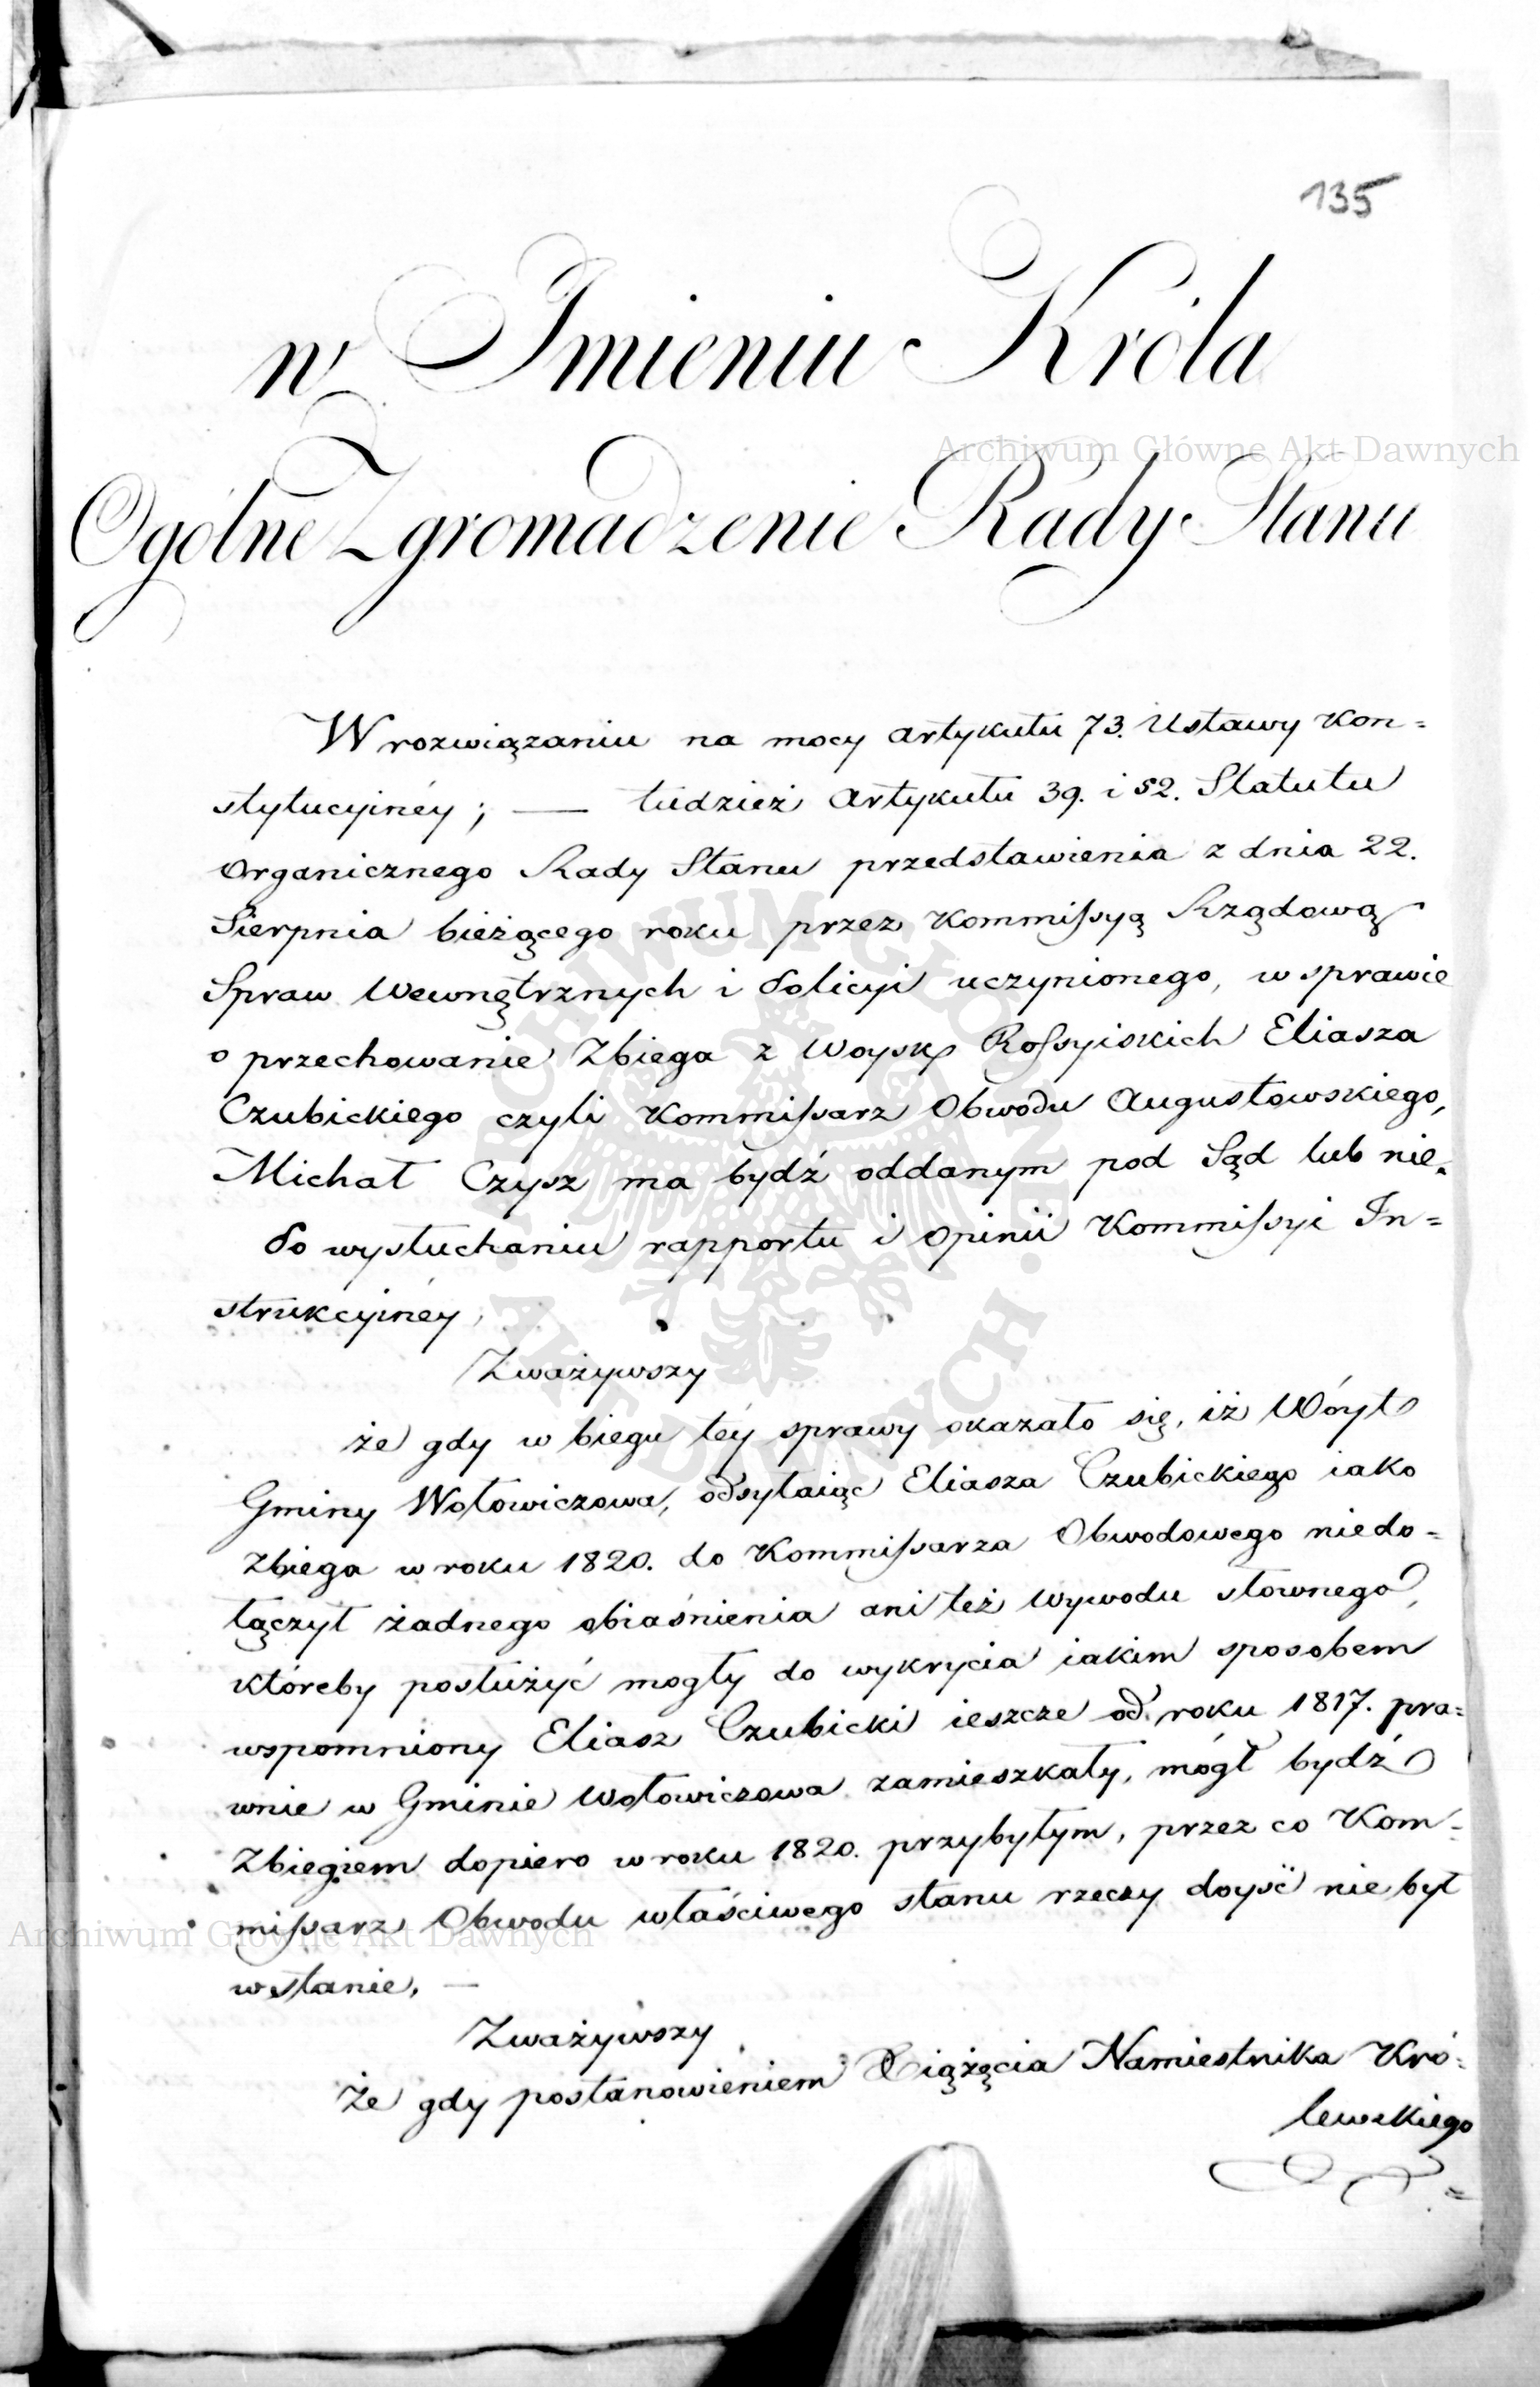 135
w Imieniu Króla
Ogólne Zgromadzenie Rady Stanu
W rozwiązaniu na mocy artykułu 73. Ustawy Kon=
stytucyinéy; — tudzież Artykułu 39. i 52. Statutu
Organicznego Rady Stanu przedstawienia z dnia 22.
Sierpnia bieżącego roku przez Kommissyą Rządową
Spraw Wewnętrznych i Policyi uczynionego, w sprawie
o przechowanie Zbiega z Woysk Rossyiskich Eliasza
Czubickiego czyli Kommissarz Obwodu Augustowskiego,
Michał Czysz ma bydź oddanym pod Sąd lub nie.
Po wysłuchaniu rapportu i Opinii Kommissyi In=
strukcyinéy,
Zważywszy
że gdy w biegu téy sprawy okazało się, iż Wóyt
Gminy Wołowiczowa, odsyłaiąc Eliasza Czubickiego iako
Zbiega w roku 1820. do Kommissarza Obwodowego niedo=
łączył żadnego obiaśnienia ani też wywodu słownego,
któreby posłużyć mogły do wykrycia iakim sposobem
wspomniony Eliasz Czubicki ieszcze od roku 1817. pra=
wnie w Gminie Wołowiczowa zamieszkały, mógł bydź
Zbiegiem dopiero w roku 1820. przybyłym, przez co Kom=
missarz Obwodu właściwego stanu rzeczy doyść nie był
w stanie. —
Zważywszy
Że gdy postanowieniem Xiążęcia Namiestnika Kró=
lewskiego
Archiwum Główne Akt Dawnych
Archiwum Główne Akt Dawnych
ARCHIWUM GŁÓWNE
AKT DAWNYCH